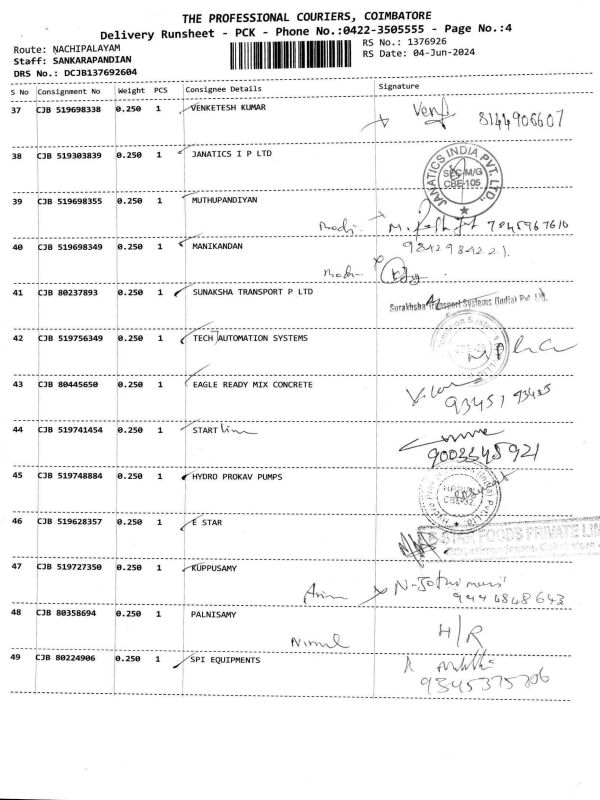 THE PROFESSIONAL COURIERS, COIMBATORE
Delivery Runsheet - PCK - Phone No.:0422-3505555 - Page No.:4
Route: NACHIPALAYAM
RS No.: 1376926
Staff: SANKARAPANDIAN
RS Date: 04-Jun-2024
DRS No.: DCJB137692604
S No Consignment No Weight PCS Consignee Details Signature
37 CJB 519698338 0.250 1 VENKETESH KUMAR
8144906607
38 CJB 519303839 0.250 1 JANATICS I P LTD
JANATICS INDIA PVT. LTD.
SEC-M/G
CBE-105
39 CJB 519698355 0.250 1 MUTHUPANDIYAN
7845967610
40 CJB 519698349 0.250 1 MANIKANDAN
9842984221
41 CJB 80237893 0.250 1 SUNAKSHA TRANSPORT P LTD
Surakhsha Transport Systems (India) Pvt. Ltd.
42 CJB 519756349 0.250 1 TECH AUTOMATION SYSTEMS
43 CJB 80445650 0.250 1 EAGLE READY MIX CONCRETE
93451 93485
44 CJB 519741454 0.250 1 START line
9003345921
45 CJB 519748884 0.250 1 HYDRO PROKAV PUMPS
46 CJB 519628357 0.250 1 E STAR
STAR FOODS PRIVATE LIM
47 CJB 519727350 0.250 1 KUPPUSAMY
9944848643
48 CJB 80358694 0.250 1 PALNISAMY
H/R
Nirmal
49 CJB 80224906 0.250 1 SPI EQUIPMENTS
9345375706